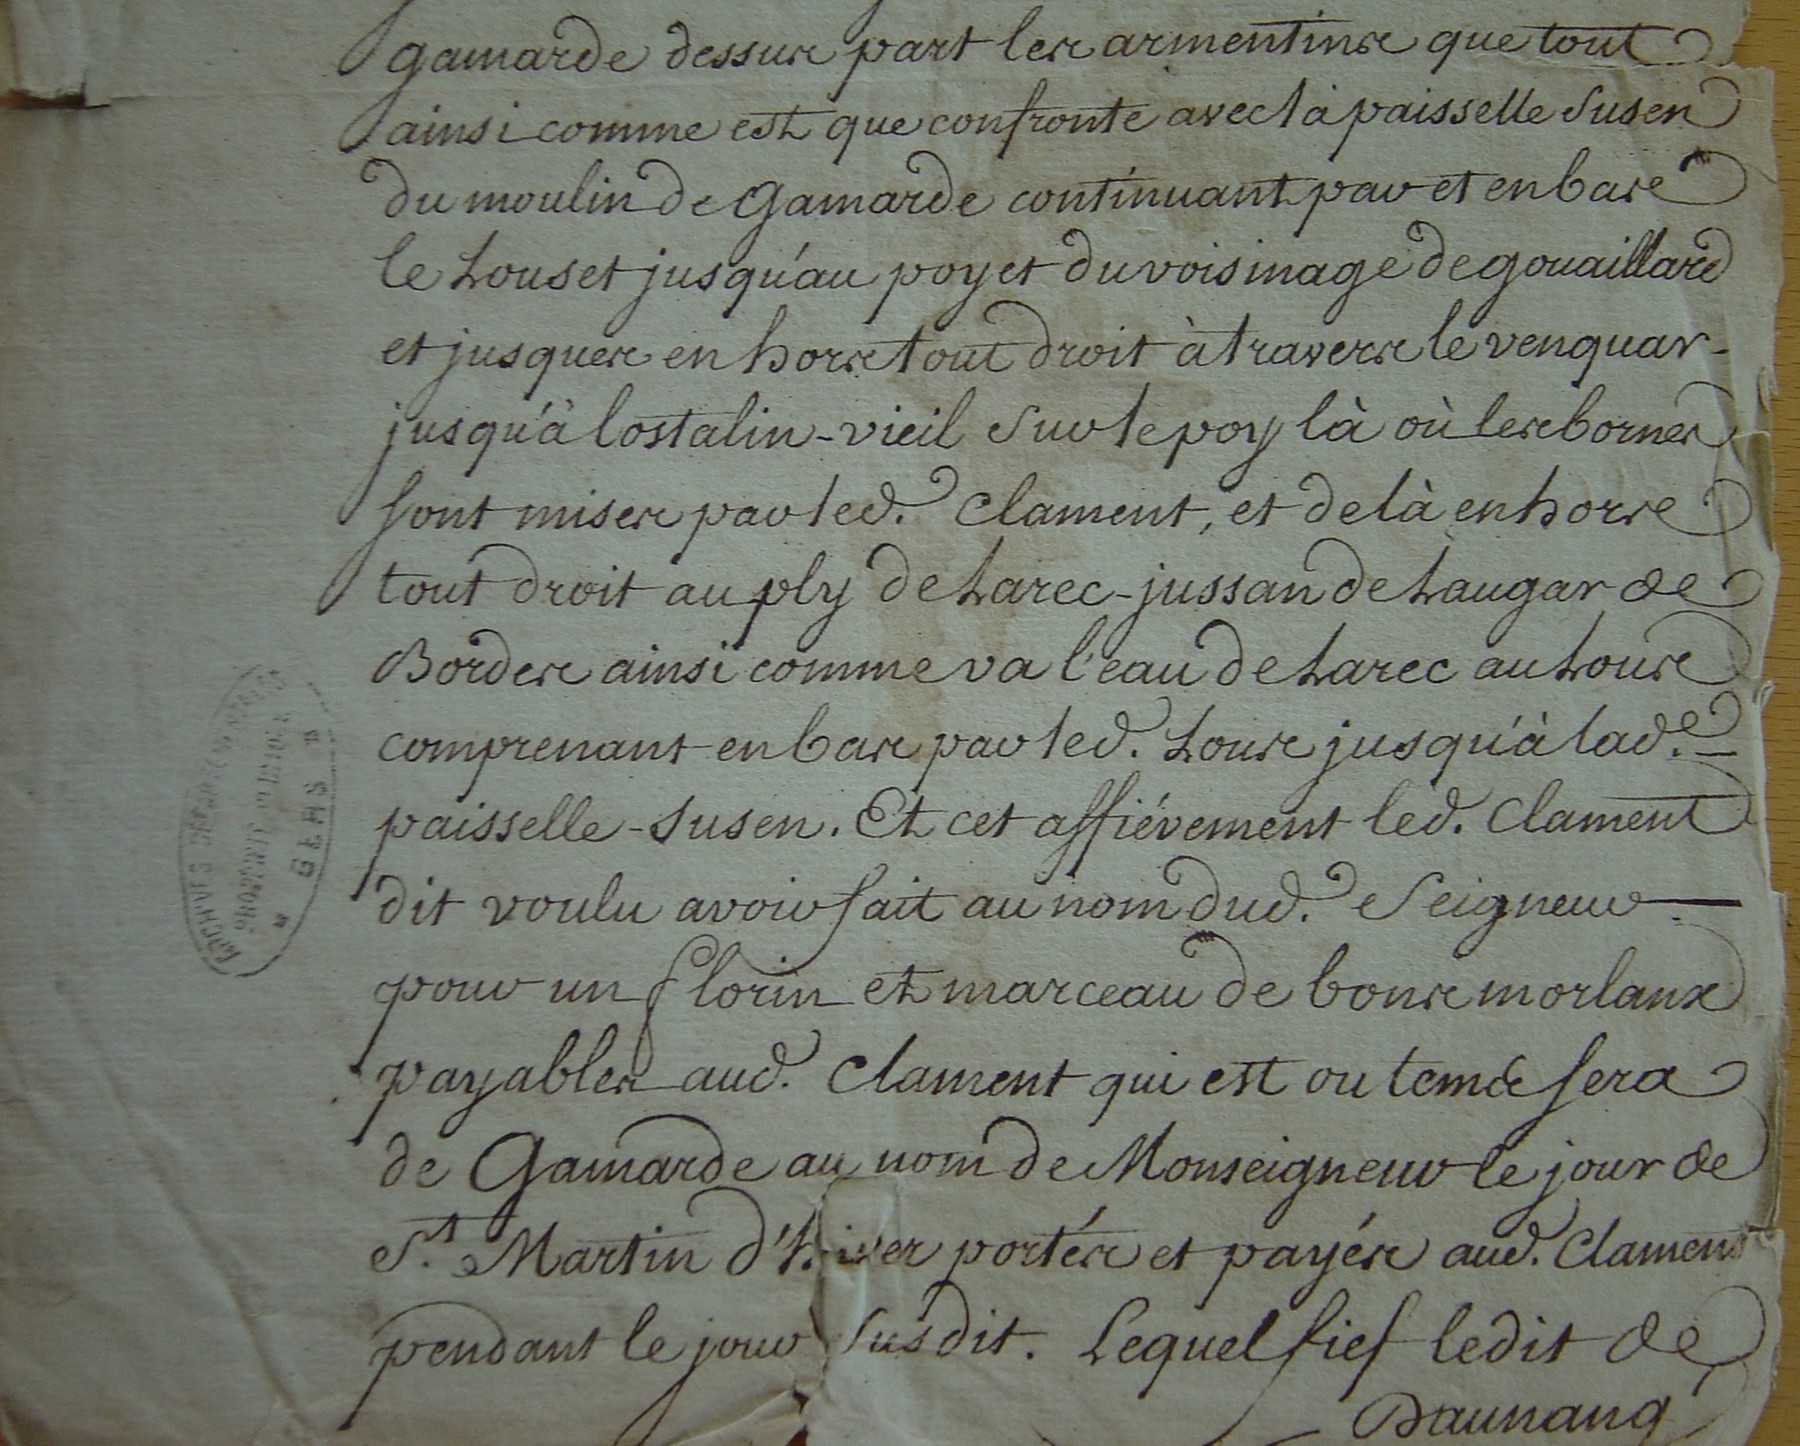 gamarde dessus part les armentins que tout
ainsi comme est que confronte avec la paisselle susen
du moulin de gamarde continuant par et en bas
le Louset jusqu'au poyet du voisinage de gouaillard
et jusques en hors tout droit à travers le venquar-
jusqu'à lostalin-vieil sur le poy là où les bornes
sont mises par led. Clament, et delà en hors
tout droit au ply de Larec-jussan de Laugar de
Bordes ainsi comme va l'eau de Larec au Lous
comprenant en bas par led. Lous jusqu'à lad.e
paisselle-susen. Et cet affiévement led. Clament
dit voulu avoir fait au nom dud. Seigneur
pour un florin et marceau de bons morlanx
payables aud. Clament qui est ou tems sera
de Gamarde au nom de Monseigneur le jour de
St. Martin d'hiver portés et payés aud. Clament
pendant le jour susdit. Lequel fief ledit de
Daunang
ARCHIVES
GERS